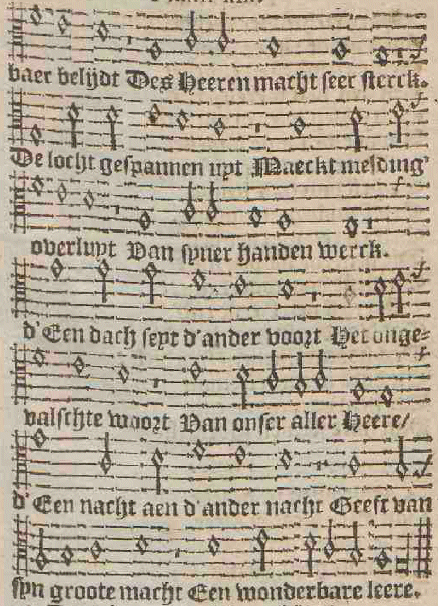 baer belijdt Des Heeren macht seer sterck.
De locht gespannen uyt Maeckt melding'
overluyt Van syner handen werck.
d'Een dach seyt d'ander voort Het onge-
valschte woort Van onser aller Heere/
d'Een nacht aen d'ander nacht Geeft van
syn groote macht Een wonderbare leere.